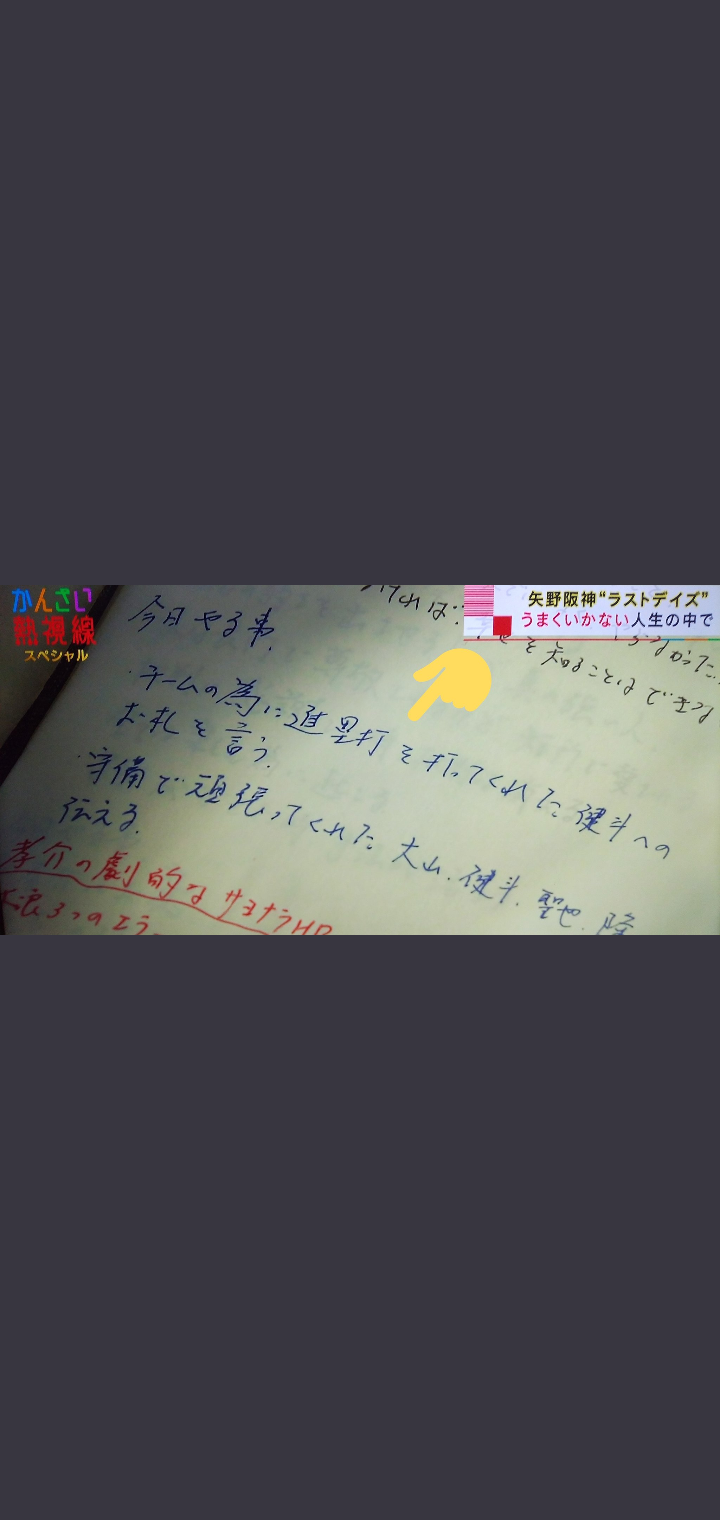 かんさい
熱視線
スペシャル
矢野阪神“ラストデイズ”
うまくいかない人生の中で
ければ
を知ることはできな
今日やる事
・チームの為に進塁打を打ってくれた健斗への
お礼を言う。
・守備で頑張ってくれた大山、健斗、聖也、隆
伝える。
孝介の劇的なサヨナラHR
3つのエラー